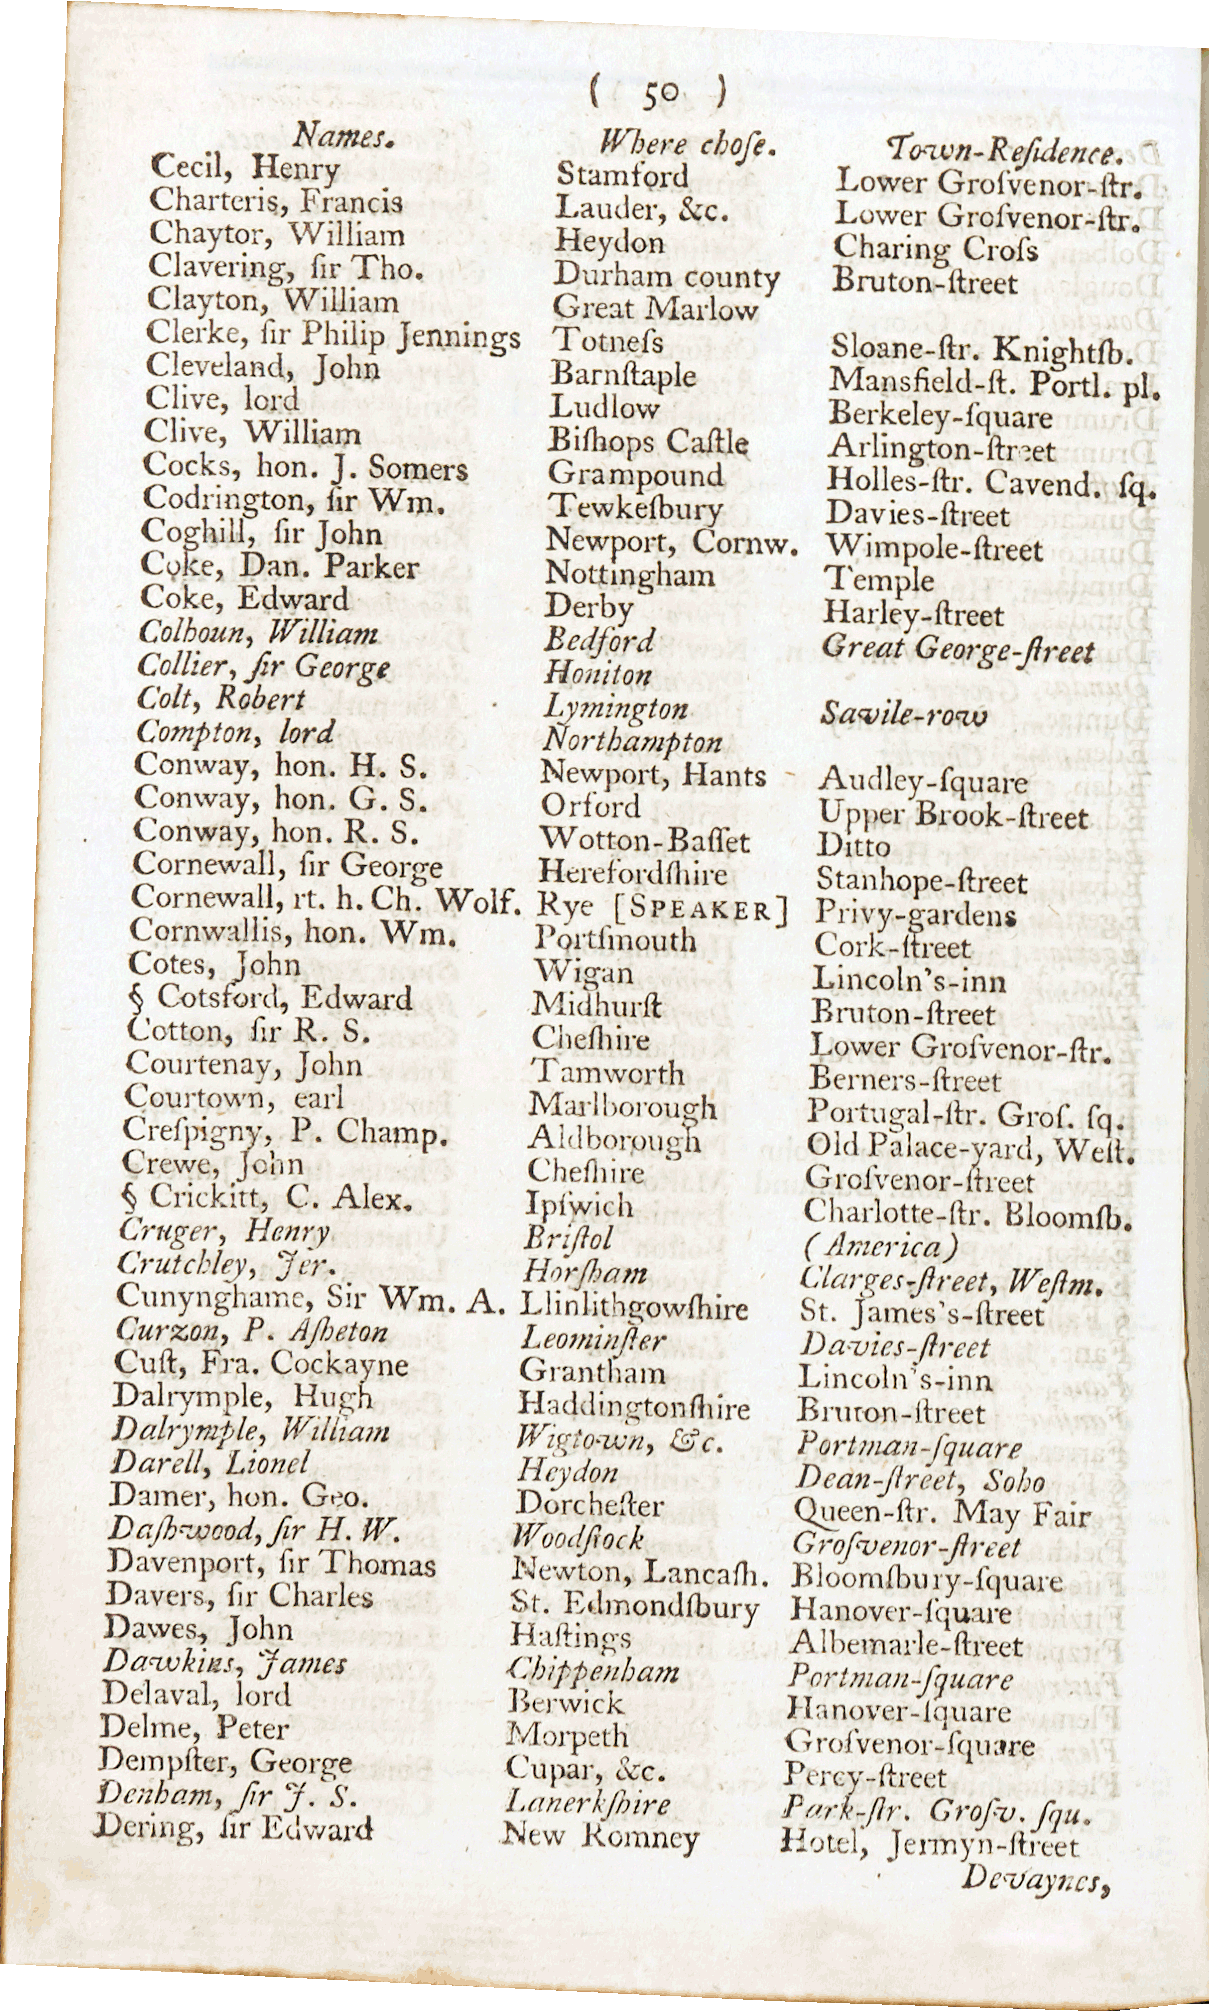 ( 50 )
Names. Where choſe. Town-Reſidence.
Cecil, Henry Stamford Lower Groſvenor-ſtr.
Charteris, Francis Lauder, &c. Lower Groſvenor-ſtr.
Chaytor, William Heydon Charing Croſs
Clavering, ſir Tho. Durham county Bruton-ſtreet
Clayton, William Great Marlow
Clerke, ſir Philip Jennings Totneſs Sloane-ſtr. Knightſb.
Cleveland, John Barnſtaple Mansfield-ſt. Portl. pl.
Clive, lord Ludlow Berkeley-ſquare
Clive, William Biſhops Caſtle Arlington-ſtreet
Cocks, hon. J. Somers Grampound Holles-ſtr. Cavend. ſq.
Codrington, ſir Wm. Tewkeſbury Davies-ſtreet
Coghill, ſir John Newport, Cornw. Wimpole-ſtreet
Coke, Dan. Parker Nottingham Temple
Coke, Edward Derby Harley-ſtreet
Colhoun, William Bedford Great George-ſtreet
Collier, ſir George Honiton
Colt, Robert Lymington Savile-row
Compton, lord Northampton
Conway, hon. H. S. Newport, Hants Audley-ſquare
Conway, hon. G. S. Orford Upper Brook-ſtreet
Conway, hon. R. S. Wotton-Baſſet Ditto
Cornewall, ſir George Herefordſhire Stanhope-ſtreet
Cornewall, rt. h. Ch. Wolf. Rye [SPEAKER] Privy-gardens
Cornwallis, hon. Wm. Portſmouth Cork-ſtreet
Cotes, John Wigan Lincoln's-inn
§ Cotsford, Edward Midhurſt Bruton-ſtreet
Cotton, ſir R. S. Cheſhire Lower Groſvenor-ſtr.
Courtenay, John Tamworth Berners-ſtreet
Courtown, earl Marlborough Portugal-ſtr. Groſ. ſq.
Creſpigny, P. Champ. Aldborough Old Palace-yard, Weſt.
Crewe, John Cheſhire Groſvenor-ſtreet
§ Crickitt, C. Alex. Ipſwich Charlotte-ſtr. Bloomſb.
Cruger, Henry Briſtol (America)
Crutchley, Jer. Horſham Clarges-ſtreet, Weſtm.
Cunynghame, Sir Wm. A. Llinlithgowſhire St. James's-ſtreet
Curzon, P. Aſheton Leominſter Davies-ſtreet
Cuſt, Fra. Cockayne Grantham Lincoln's-inn
Dalrymple, Hugh Haddingtonſhire Bruton-ſtreet
Dalrymple, William Wigtown, &c. Portman-ſquare
Darell, Lionel Heydon Dean-ſtreet, Soho
Damer, hon. Geo. Dorcheſter Queen-ſtr. May Fair
Daſhwood, ſir H. W. Woodſtock Groſvenor-ſtreet
Davenport, ſir Thomas Newton, Lancaſh. Bloomſbury-ſquare
Davers, ſir Charles St. Edmondſbury Hanover-ſquare
Dawes, John Haſtings Albemarle-ſtreet
Dawkins, James Chippenham Portman-ſquare
Delaval, lord Berwick Hanover-ſquare
Delme, Peter Morpeth Groſvenor-ſquare
Dempſter, George Cupar, &c. Percy-ſtreet
Denham, ſir J. S. Lanerkſhire Park-ſtr. Groſv. ſqu.
Dering, ſir Edward New Romney Hotel, Jermyn-ſtreet
Devaynes,